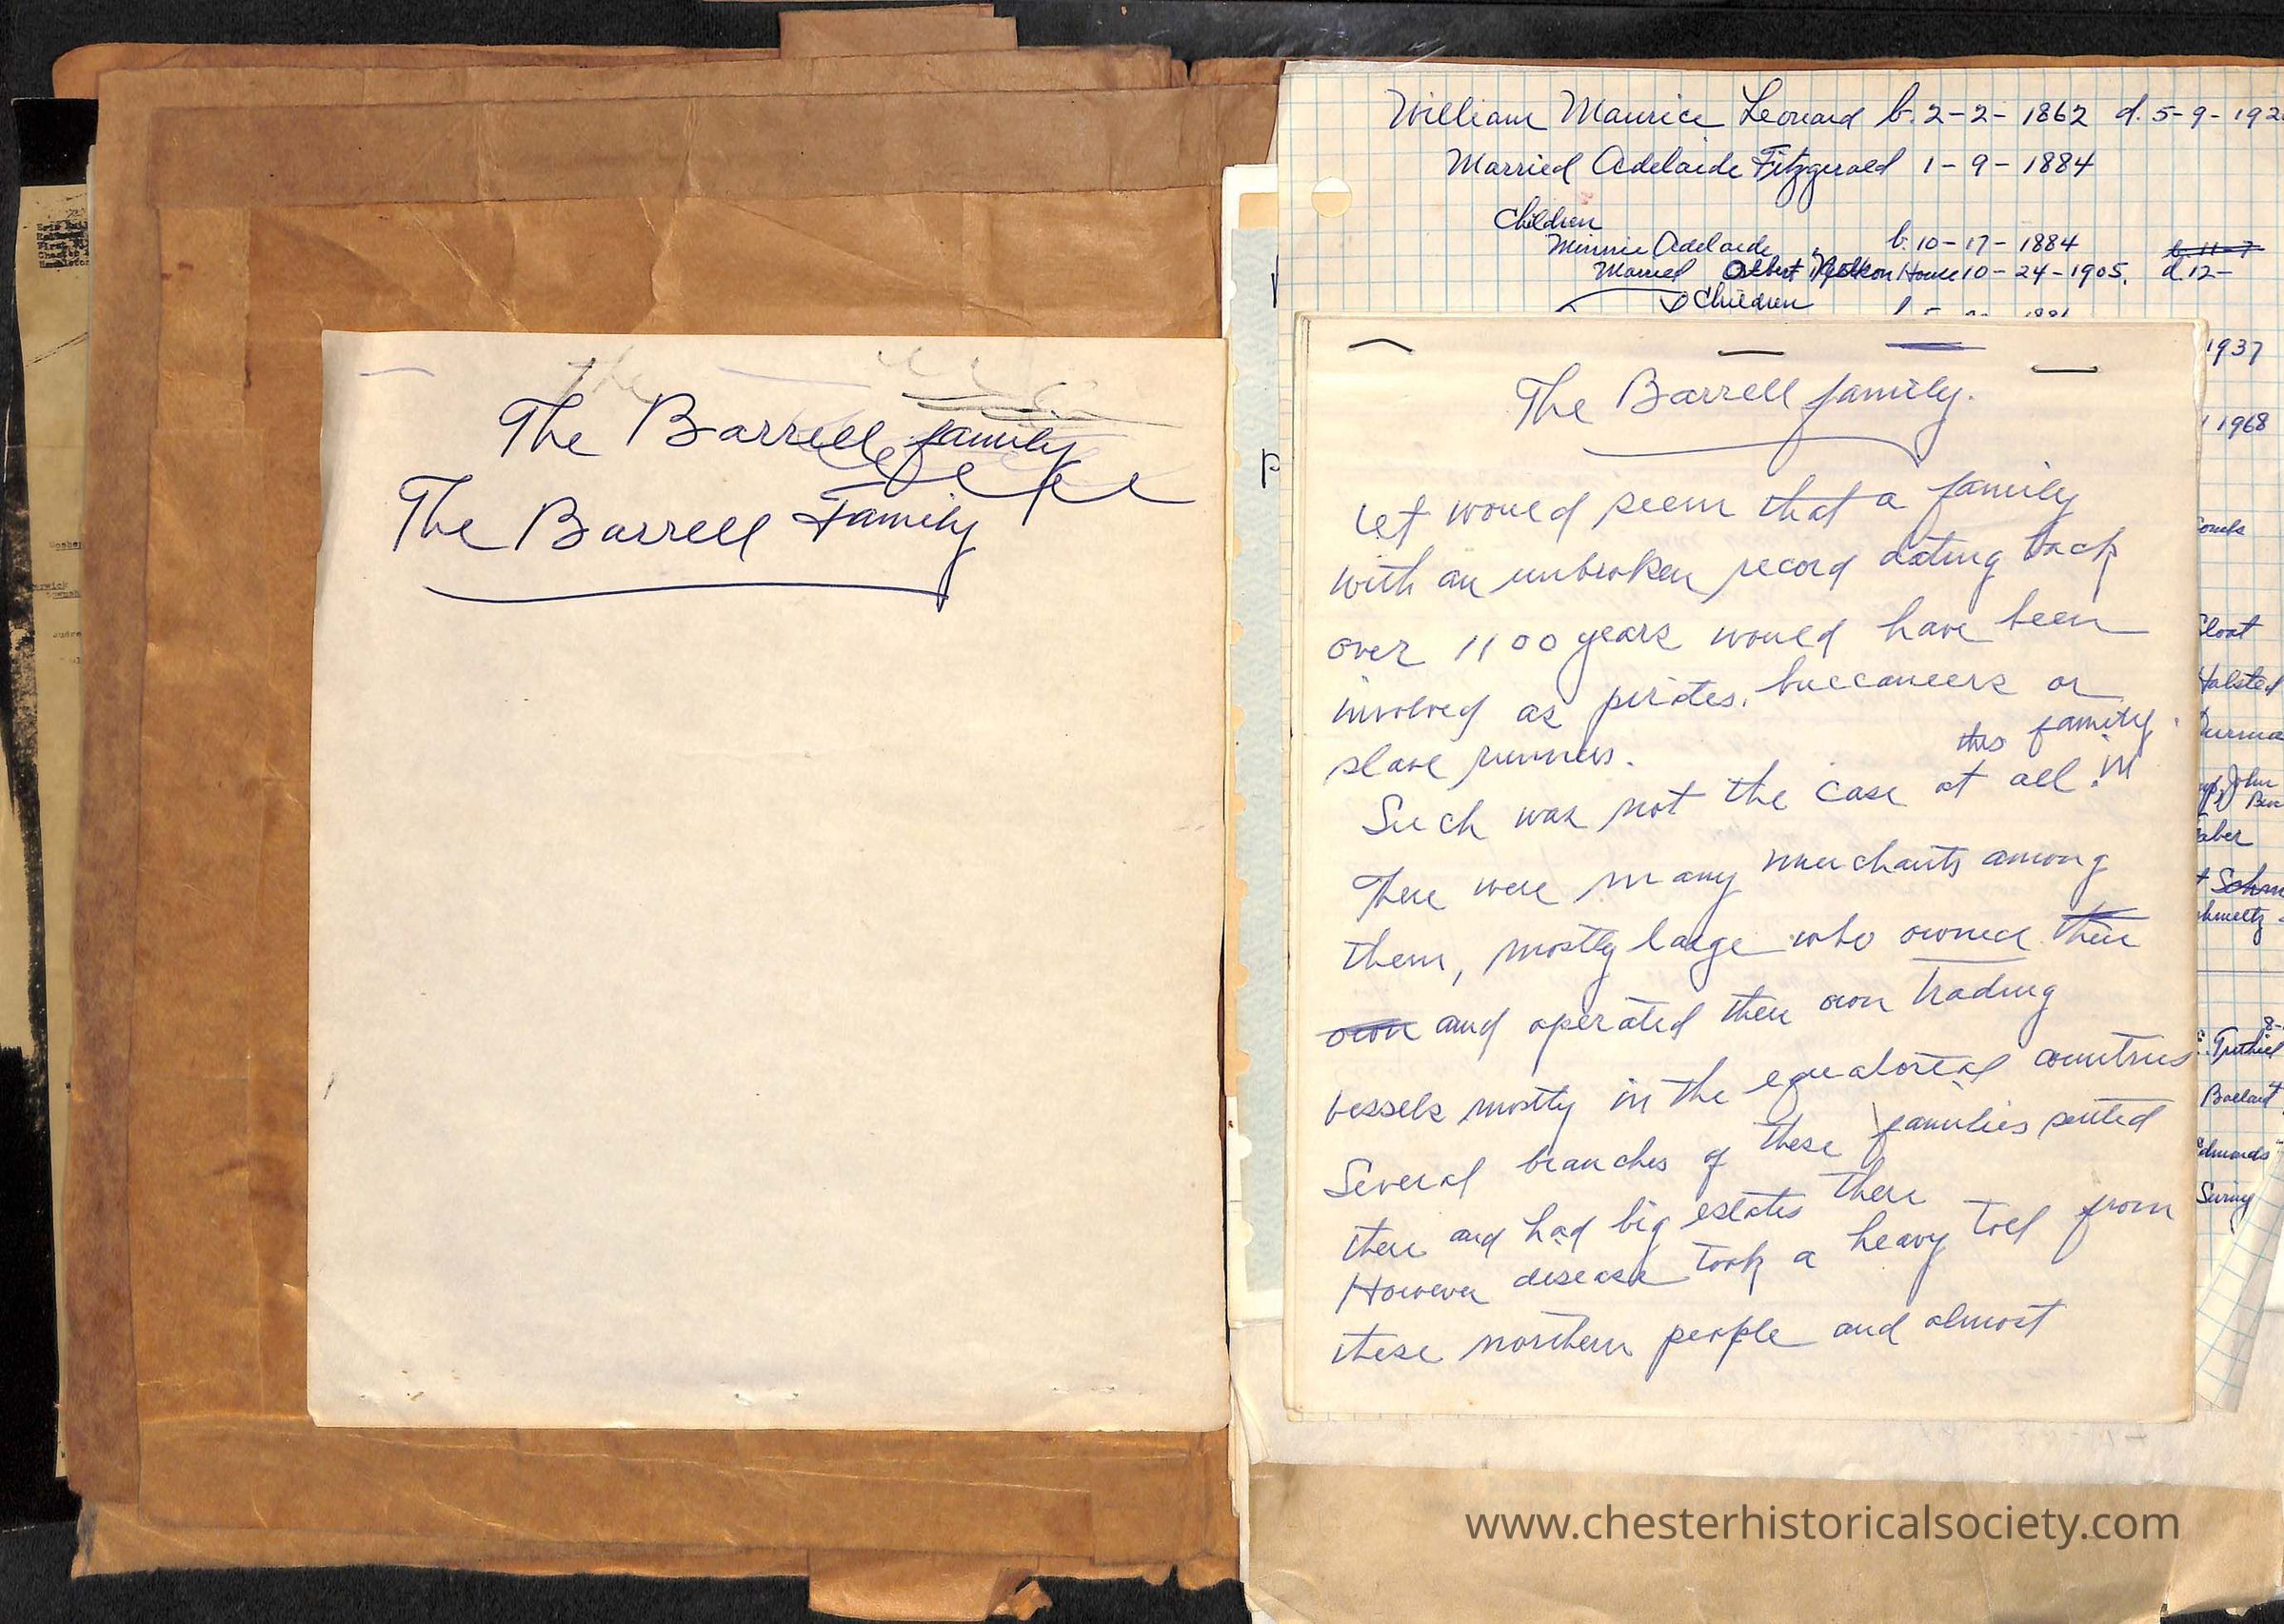 The Barrell family
The Barrell Family
William Maurice Leonard b. 2-2-1862 d. 5-9-192
Married Adelaide Fitzgerald 1-9-1884
Children
Minnie Adelaide b. 10-17-1884 b. 11-7
Married House 10-24-1905. d. 12-
Children
1937
1968
The Barrell family.
It would seem that a family
with an unbroken record dating back
over 1100 years would have been
involved as pirates, buccaneers or
slave runners.
this family.
Such was not the case at all in
There were many merchants among
them, mostly large who owned their
own and operated their own trading
vessels mostly in the equatorial countries
Several branches of these families settled
there and had big estates there
However disease took a heavy toll from
these northern people and almost
Sloat
Halsted
John
aber
Schm
hmeltz
8-
Edmonds
www.chesterhistoricalsociety.com